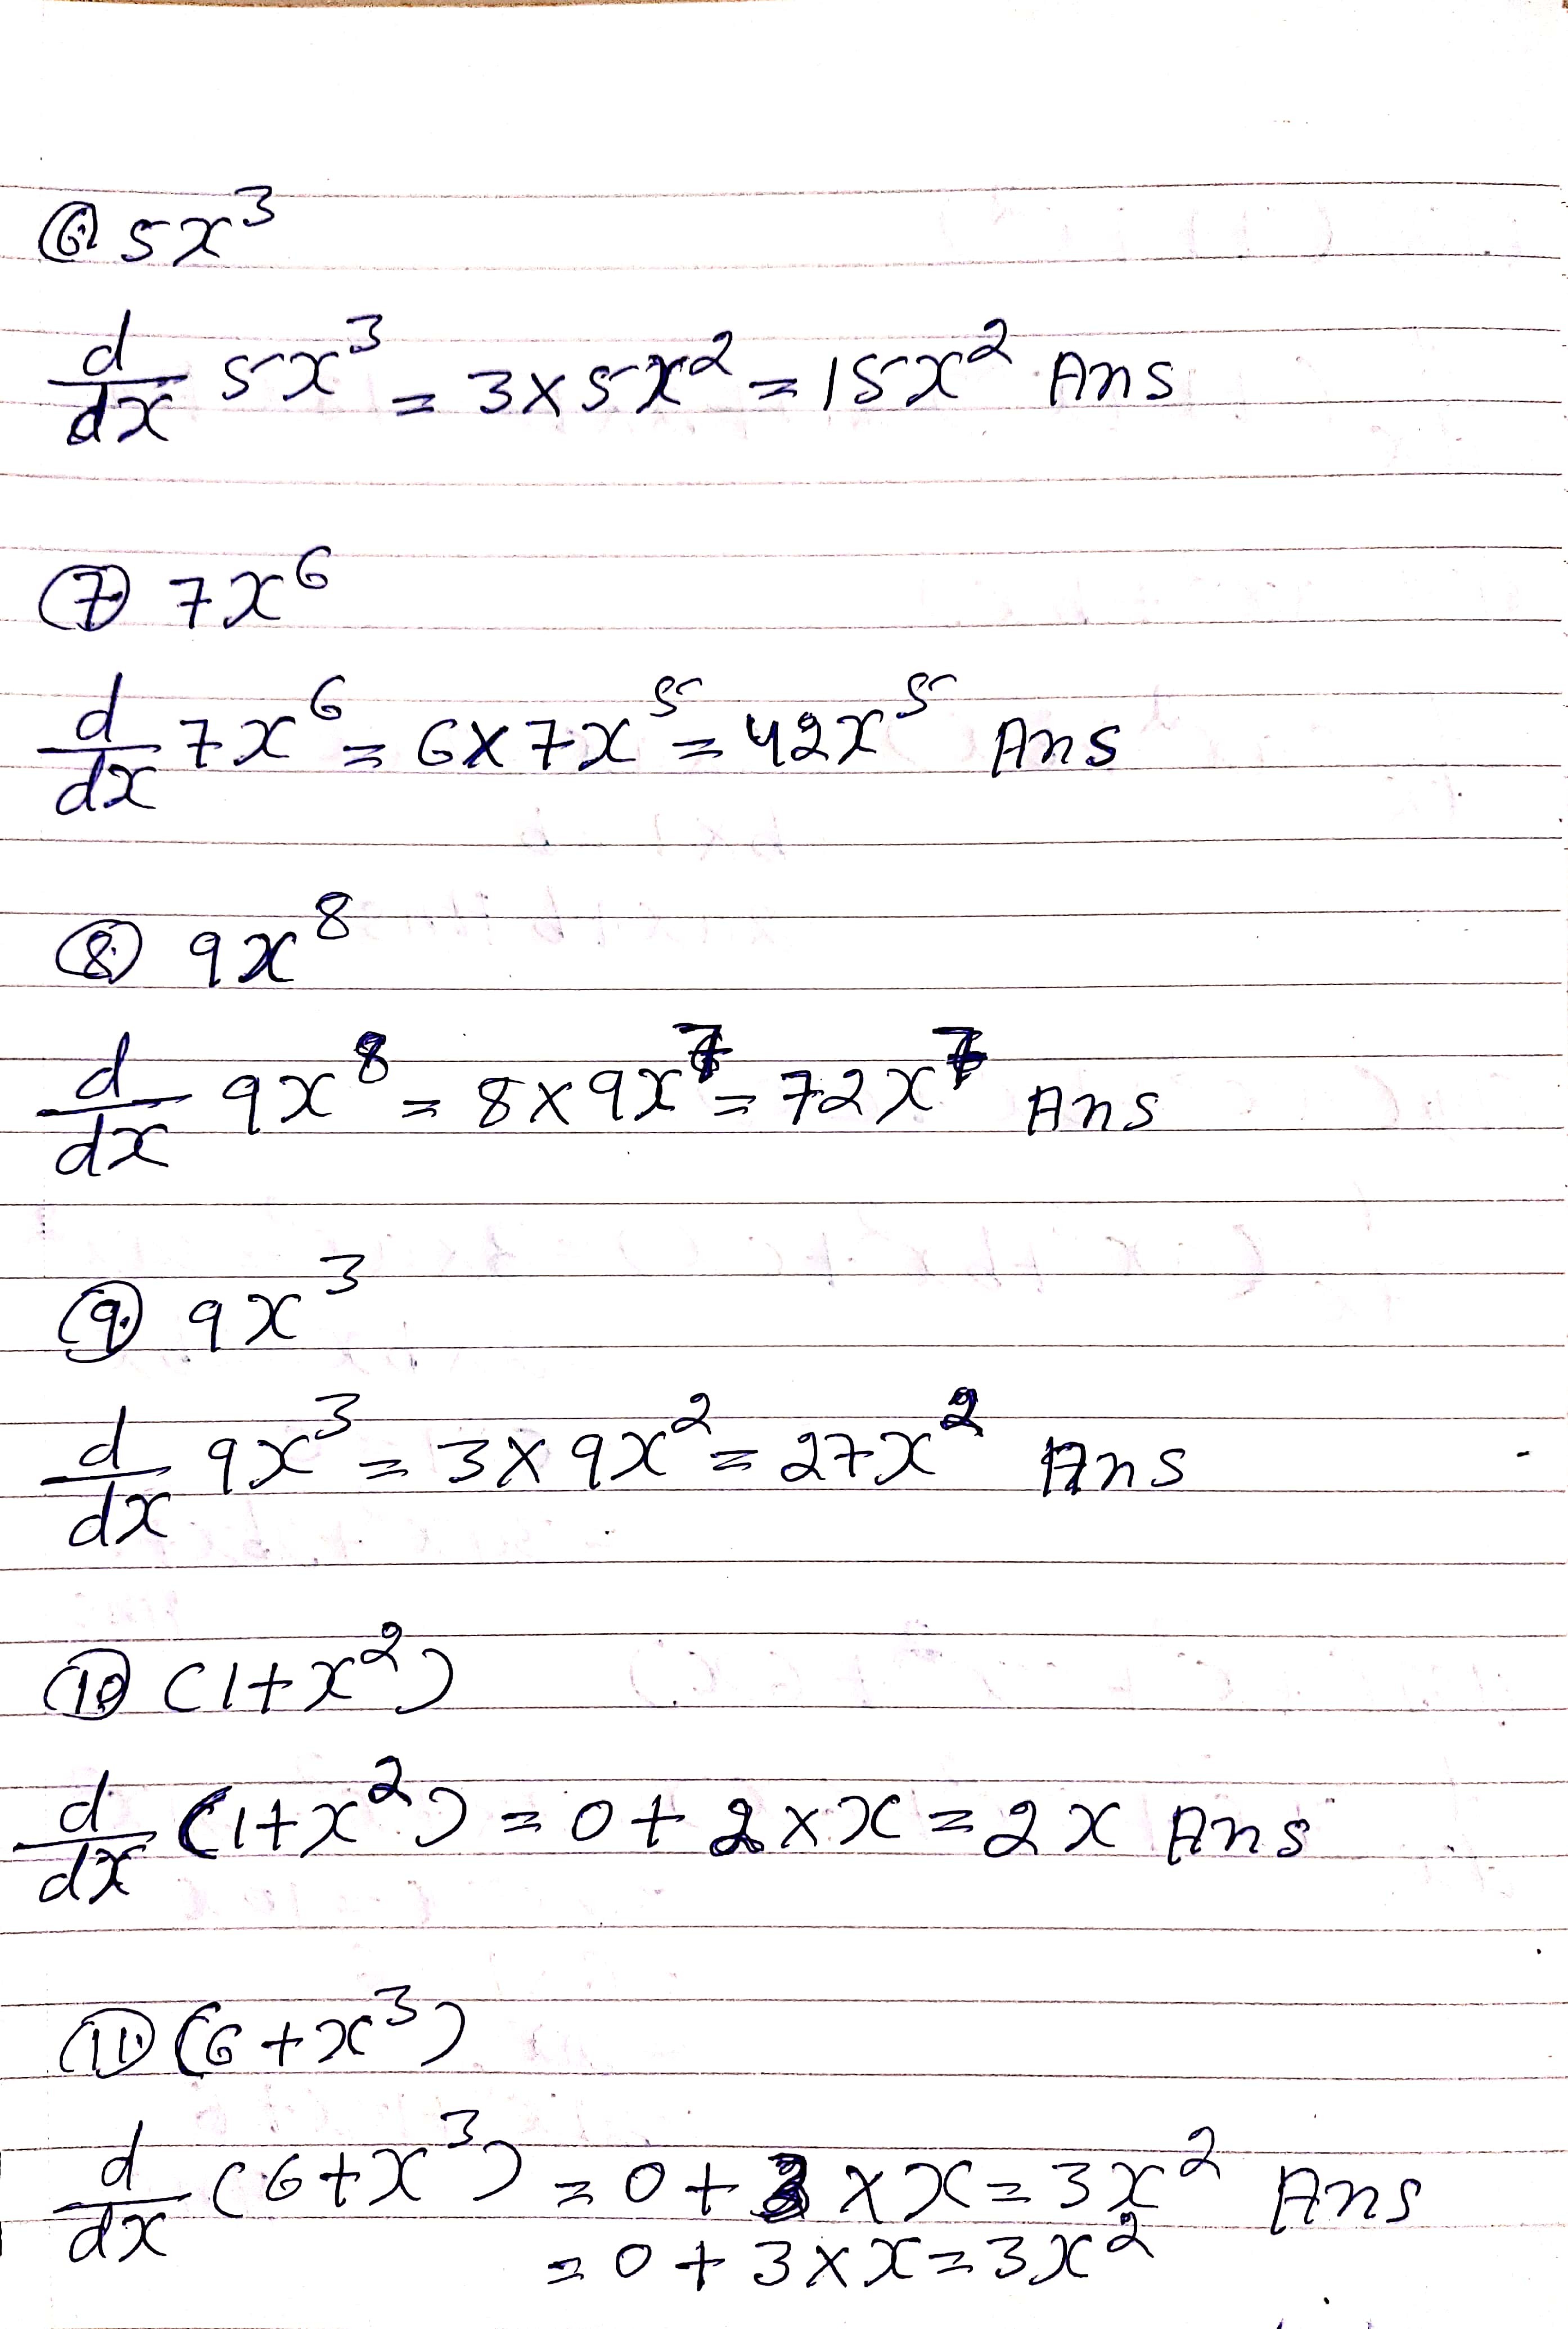 ⑥ 5x³
d/dx 5x³ = 3×5x² = 15x² Ans
⑦ 7x⁶
d/dx 7x⁶ = 6×7x⁵ = 42x⁵ Ans
⑧ 9x⁸
d/dx 9x⁸ = 8×9x⁷ = 72x⁷ Ans
⑨ 9x³
d/dx 9x³ = 3×9x² = 27x² Ans
⑩ (1+x²)
d/dx (1+x²) = 0+2×x = 2x Ans
⑪ (6+x³)
d/dx (6+x³) = 0+3×x = 3x² Ans
= 0+3×x = 3x²